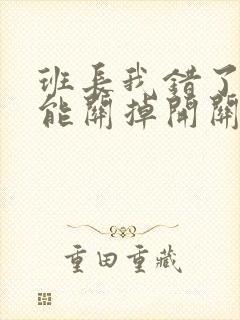 班长我错了
能關掉開關
重田重藏